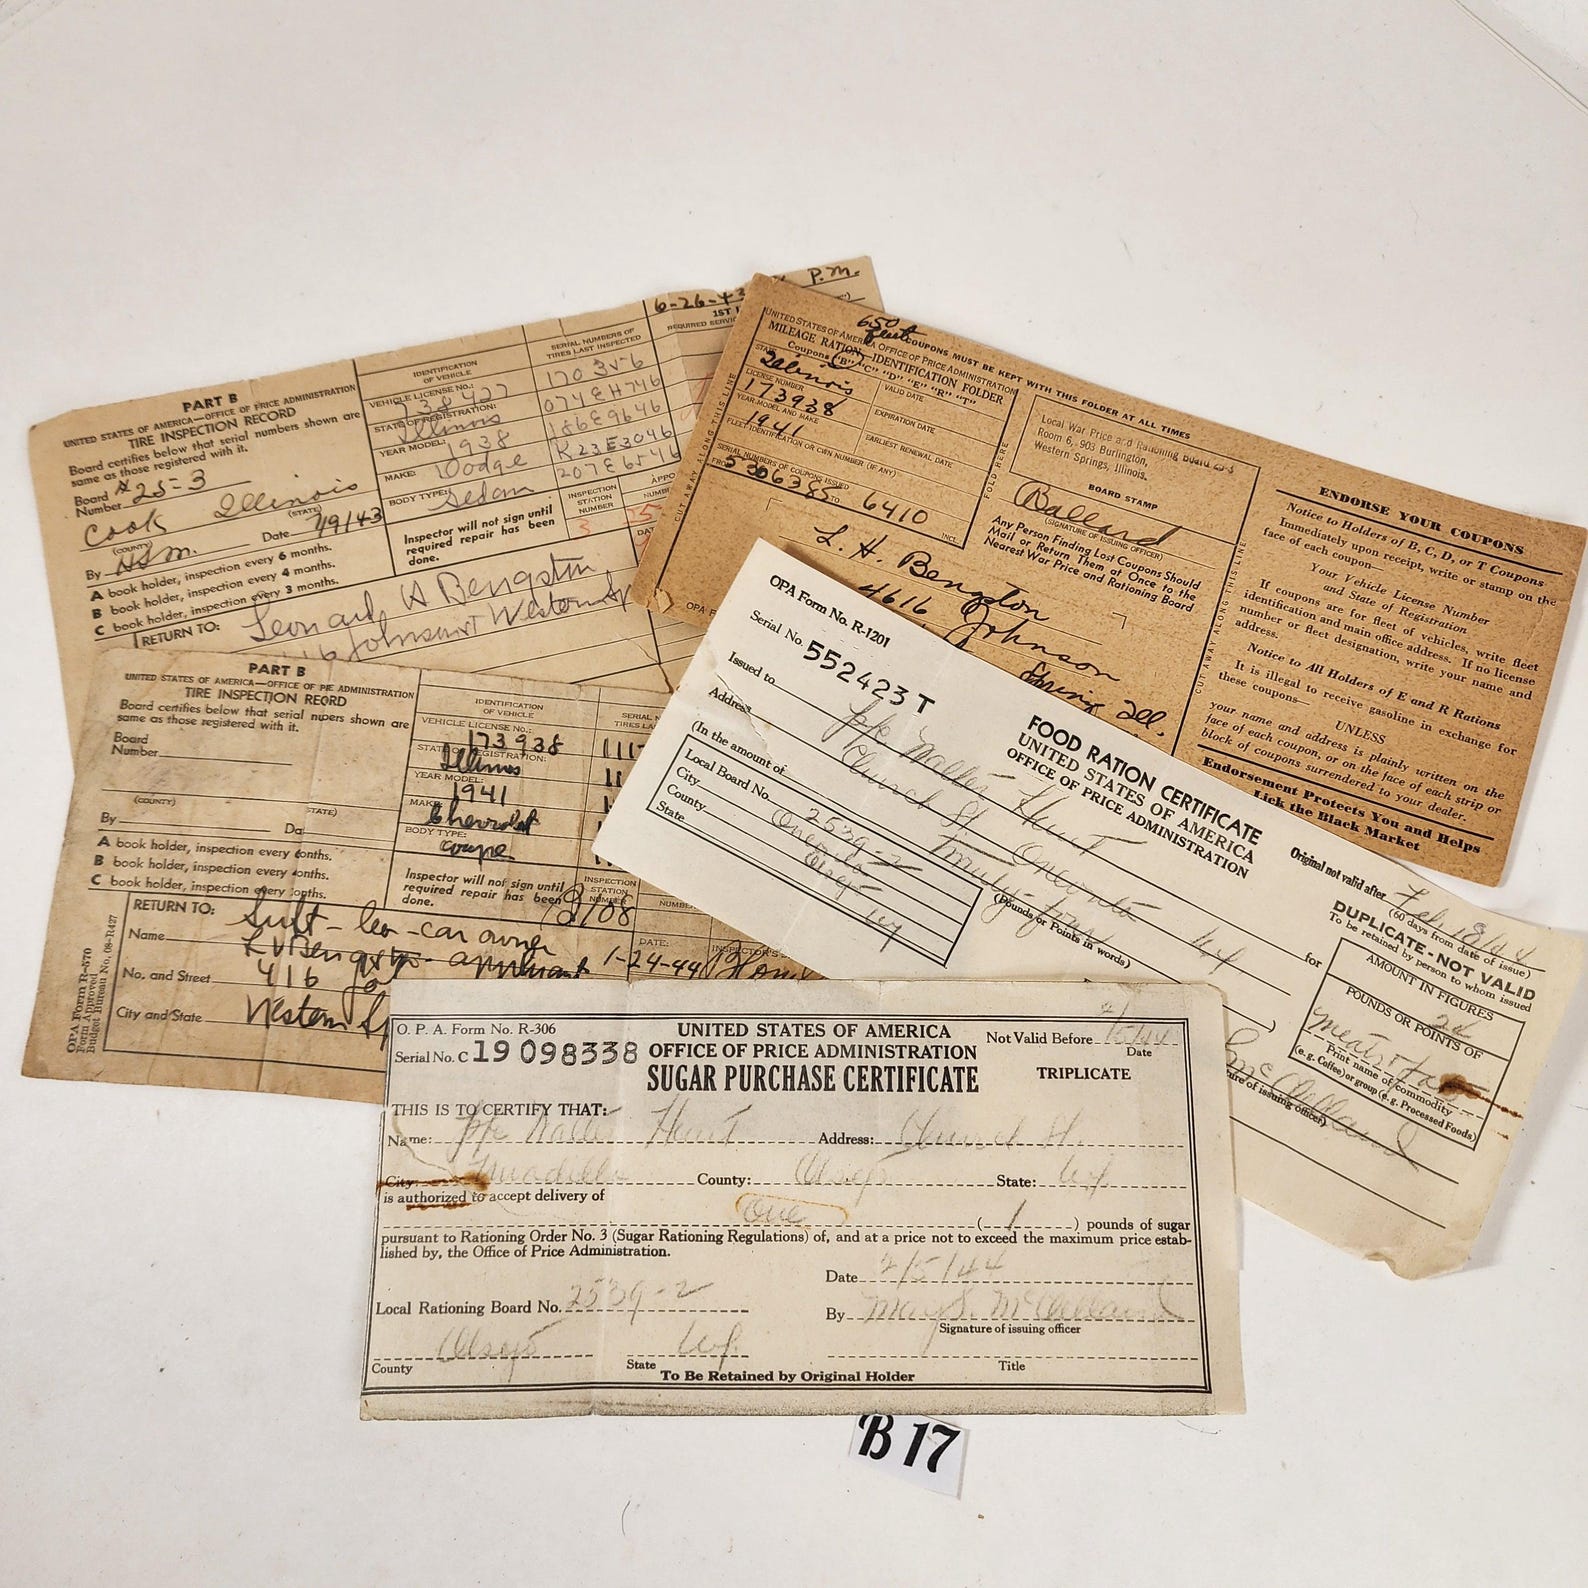 PART B
UNITED STATES OF AMERICA—OFFICE OF PRICE ADMINISTRATION
TIRE INSPECTION RECORD
Board certifies below that serial numbers shown are
same as those registered with it.
Board
Number 25-3
Cook Illinois
(COUNTY) (STATE)
By Date 7/9/43
A book holder, inspection every 6 months.
B book holder, inspection every 4 months.
C book holder, inspection every 3 months.
RETURN TO: Leonard H Bengston
Johnson Western
IDENTIFICATION
OF VEHICLE
VEHICLE LICENSE NO.:
738427
STATE OF REGISTRATION:
Illinois
YEAR MODEL: 1938
MAKE: Dodge
BODY TYPE: Sedan
Inspector will not sign until
required repair has been
done.
SERIAL NUMBERS OF
TIRES LAST INSPECTED
170356
074EH746
186E9646
K23E3046
207E6546
INSPECTION
STATION
NUMBER
6-26-43 P.M.
PART B
UNITED STATES OF AMERICA—OFFICE OF ADMINISTRATION
TIRE INSPECTION
Board certifies below that serial shown are
same as those registered with it.
Board
Number
(COUNTY) STATE)
By
A book holder, inspection every
B book holder, inspection every
C book holder, inspection every
RETURN TO:
Name
No. and Street 416
City and State Western
OPA Form R-570
Form Approved
Budget Bureau No. 08-R427
IDENTIFICATION
OF VEHICLE
VEHICLE LICENSE NO.:
173938
STATE OF REGISTRATION:
Illinois
YEAR MODEL:
1941
MAKE:
Chevrolet
BODY TYPE:
coupe
Inspector will not sign until
required repair has been
done.
INSPECTION
STATION
NUMBER
DATE:
1-24-44
car owner
UNITED STATES OF AMERICA OFFICE OF PRICE ADMINISTRATION
MILEAGE RATION—IDENTIFICATION FOLDER
Coupons "B" "C" "D" "E" "R" "T"
COUPONS MUST BE KEPT WITH THIS FOLDER AT ALL TIMES
STATE
Illinois
LICENSE NUMBER
173938
YEAR MODEL AND MAKE
1941
FLEET IDENTIFICATION OR OWN NUMBER (IF ANY)
SERIAL NUMBERS OF COUPONS ISSUED
5306385 TO 6410 INCL.
VALID DATE
EXPIRATION DATE
EARLIEST RENEWAL DATE
CUT AWAY ALONG THIS LINE
FOLD HERE
Local War Price and Rationing Board 25-3
Room 6, 903 Burlington,
Western Springs, Illinois.
BOARD STAMP
Ballard
(SIGNATURE OF ISSUING OFFICER)
Any Person Finding Lost Coupons Should
Mail or Return Them at Once to the
Nearest War Price and Rationing Board
L. H. Bengston
4616 Johnson
Spring Ill.
CUT AWAY ALONG THIS LINE
ENDORSE YOUR COUPONS
Notice to Holders of B, C, D, or T Coupons
Immediately upon receipt, write or stamp on the
face of each coupon—
Your Vehicle License Number
and State of Registration
If coupons are for fleet of vehicles, write fleet
identification and main office address. If no license
number or fleet designation, write your name and
address.
Notice to All Holders of E and R Rations
It is illegal to receive gasoline in exchange for
these coupons—
UNLESS
your name and address is plainly written on the
face of each coupon, or on the face of each strip or
block of coupons surrendered to your dealer.
Endorsement Protects You and Helps
Lick the Black Market
OPA Form No. R-1201
Serial No. 552423 T
FOOD RATION CERTIFICATE
UNITED STATES OF AMERICA
OFFICE OF PRICE ADMINISTRATION
Issued to Pfc Walter Hunt
Address Church St. Oneonta
(In the amount of Twenty-four
(Pounds or Points in words)
for
Local Board No. 2539-2
City Oneonta
County Otsego
State NY
Original not valid after Feb 18/44
(60 days from date of issue)
DUPLICATE-NOT VALID
To be retained by person to whom issued
AMOUNT IN FIGURES
24
POUNDS OR POINTS OF
Meats
Print name of commodity
(e.g. Coffee) or group (e.g. Processed Foods)
McClelland
O. P. A. Form No. R-306
Serial No. C 19 098338
UNITED STATES OF AMERICA
OFFICE OF PRICE ADMINISTRATION
SUGAR PURCHASE CERTIFICATE
Not Valid Before 2/5/44
Date
TRIPLICATE
THIS IS TO CERTIFY THAT:
Name: Pfc Walter Hunt Address: Church St.
City: Unadilla County: Otsego State: NY
is authorized to accept delivery of
One (1) pounds of sugar
pursuant to Rationing Order No. 3 (Sugar Rationing Regulations) of, and at a price not to exceed the maximum price estab-
lished by, the Office of Price Administration.
Date 2/5/44
Local Rationing Board No. 2539-2
By Mary S. McClelland
Signature of issuing officer
Otsego NY
County State Title
To Be Retained by Original Holder
B 17